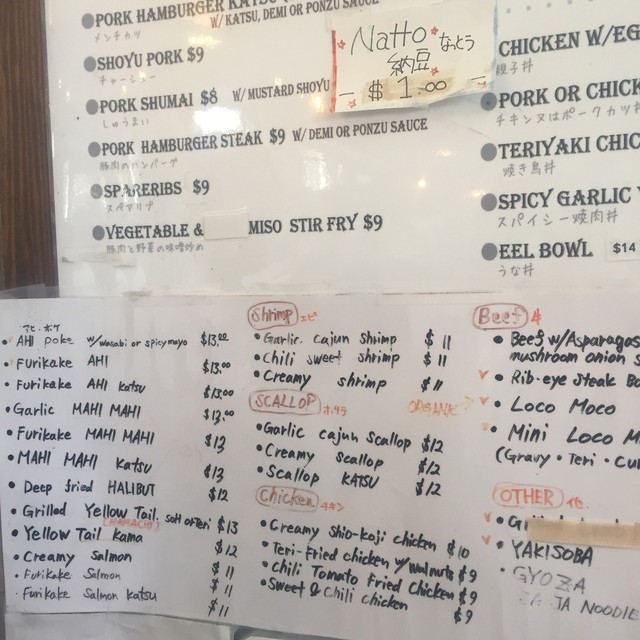 PORK HAMBURGER KATSU
W/ KATSU, DEMI OR PONZU SAUCE
メンチカツ
SHOYU PORK $9
チャーシュー
PORK SHUMAI $8 W/ MUSTARD SHOYU
しゅうまい
PORK HAMBURGER STEAK $9 W/ DEMI OR PONZU SAUCE
豚肉のハンバーグ
SPARERIBS $9
スペアリブ
VEGETABLE & MISO STIR FRY $9
豚肉と野菜の味噌炒め
Natto なっとう
納豆
$1.00
CHICKEN W/EG
親子丼
PORK OR CHICK
チキン又はポークカツ丼
TERIYAKI CHIC
焼き鳥丼
SPICY GARLIC
スパイシー焼肉丼
EEL BOWL $14
うな丼
アヒ・ポケ
AHI poke w/wasabi or spicy mayo $13.00
Furikake AHI $13.00
Furikake AHI Katsu $13.00
Garlic MAHI MAHI $13.00
Furikake MAHI MAHI $13
MAHI MAHI Katsu $13
Deep fried HALIBUT $12
Grilled Yellow Tail. salt or Teri $13
(HAMACHI)
Yellow Tail Kama $12
Creamy Salmon $11
Furikake Salmon $11
Furikake Salmon Katsu $11
Shrimp エビ
Garlic cajun shrimp $11
Chili sweet shrimp $11
Creamy shrimp $11
SCALLOP ホタテ
Garlic cajun Scallop $12
Creamy scallop $12
Scallop KATSU $12
Chicken チキン
Creamy Shio-koji chicken $10
Teri-fried chicken w/walnuts $9
Chili Tomato Fried Chicken $9
Sweet & Chili chicken $9
Beef 牛
Beef w/Asparagas
mushroom onion s
Rib-eye Steak Bo
ORGANIC
Loco Moco
Mini Loco M
(Gravy・Teri・Cu
OTHER 他
Gr
YAKISOBA
GYOZA
NOODLE